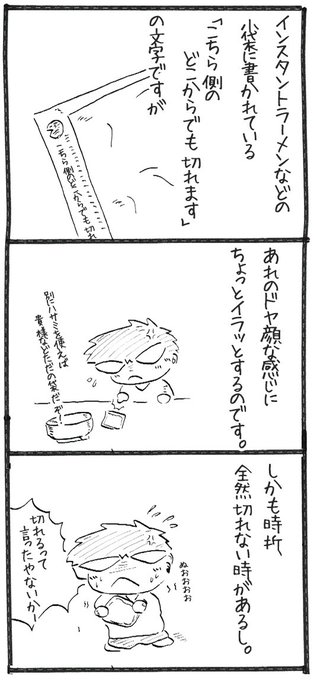 インスタントラーメンなどの
小袋に書かれている
「こちら側の
どこからでも切れます」
の文字ですが
こちら側のどこからでも切れ
あれのドヤ顔な感じに
ちょっとイラッとするのです。
別にハサミを使えば
貴様などただの袋だぞー!
しかも時折
全然切れない時があるし。
ぬぉおぉおぉ
切れるって
言ったやないかー